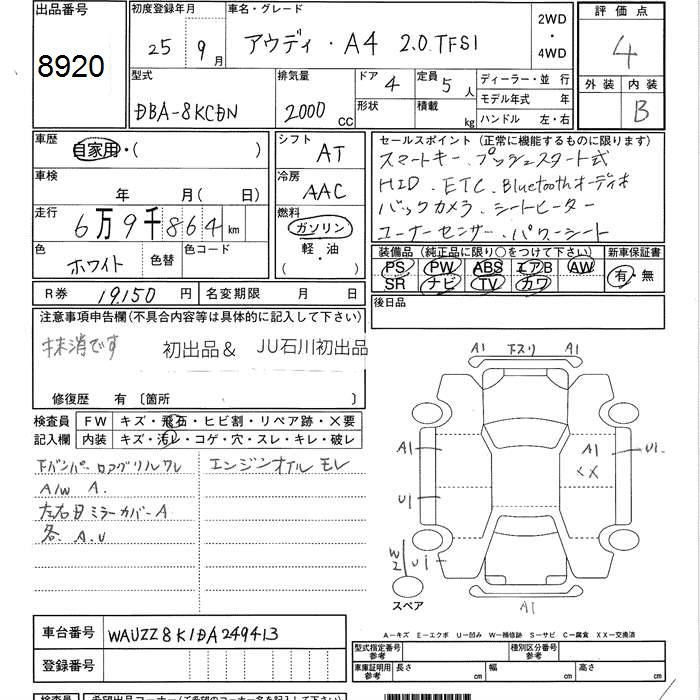 出品番号
8920
初度登録年月
25 年 9 月
車名・グレード
アウディ・A4 2.0 TFSI
2WD
・
4WD
評価点
4
外装 内装
B
型式
DBA-8KCDN
排気量
2000 CC
ドア 4
形状
定員 5 人
積載 kg
ディーラー・並行
モデル年式 年
ハンドル 左・右
車歴
自家用・( )
車検
年 月( 日)
走行
6万9千864 km
色
ホワイト
色替
色コード
シフト
AT
冷房
AAC
燃料
ガソリン
・
軽・油
( )
セールスポイント(正常に機能するものに限ります)
スマートキー. プッシュスタート式
HID. ETC. Bluetoothオーディオ
バックカメラ. シートヒーター
コーナーセンサー. パワーシート
装備品(純正品に限り○をつけて下さい)
PS PW ABS エアB AW
SR ナビ TV カワ
新車保証書
有・無
R券 19,150 円
名変期限 月 日
後日品
注意事項申告欄(不具合内容等は具体的に記入して下さい)
抹消です 初出品& JU石川初出品
修復歴 有〔箇所 〕
検査員
記入欄
FW キズ・飛石・ヒビ割・リペア跡・×要
内装 キズ・汚レ・コゲ・穴・スレ・キレ・破レ
Fバンパーロアグリルワレ
A/W A.
左右ミラーカバーA
各. A.U
エンジンオイルモレ
A1 下スリ A1
A1
A1
××
U1.
U1
W2
U1
スペア
A1
A―キズ E―エクボ U―凹み W―補修跡 S―サビ C―腐食 XX―交換済
車台番号 WAUZZ8K1DA249413
登録番号
型式指定番号
参考
種別区分番号
参考
車庫証明用
参考
長さ
cm
幅
cm
高さ
cm